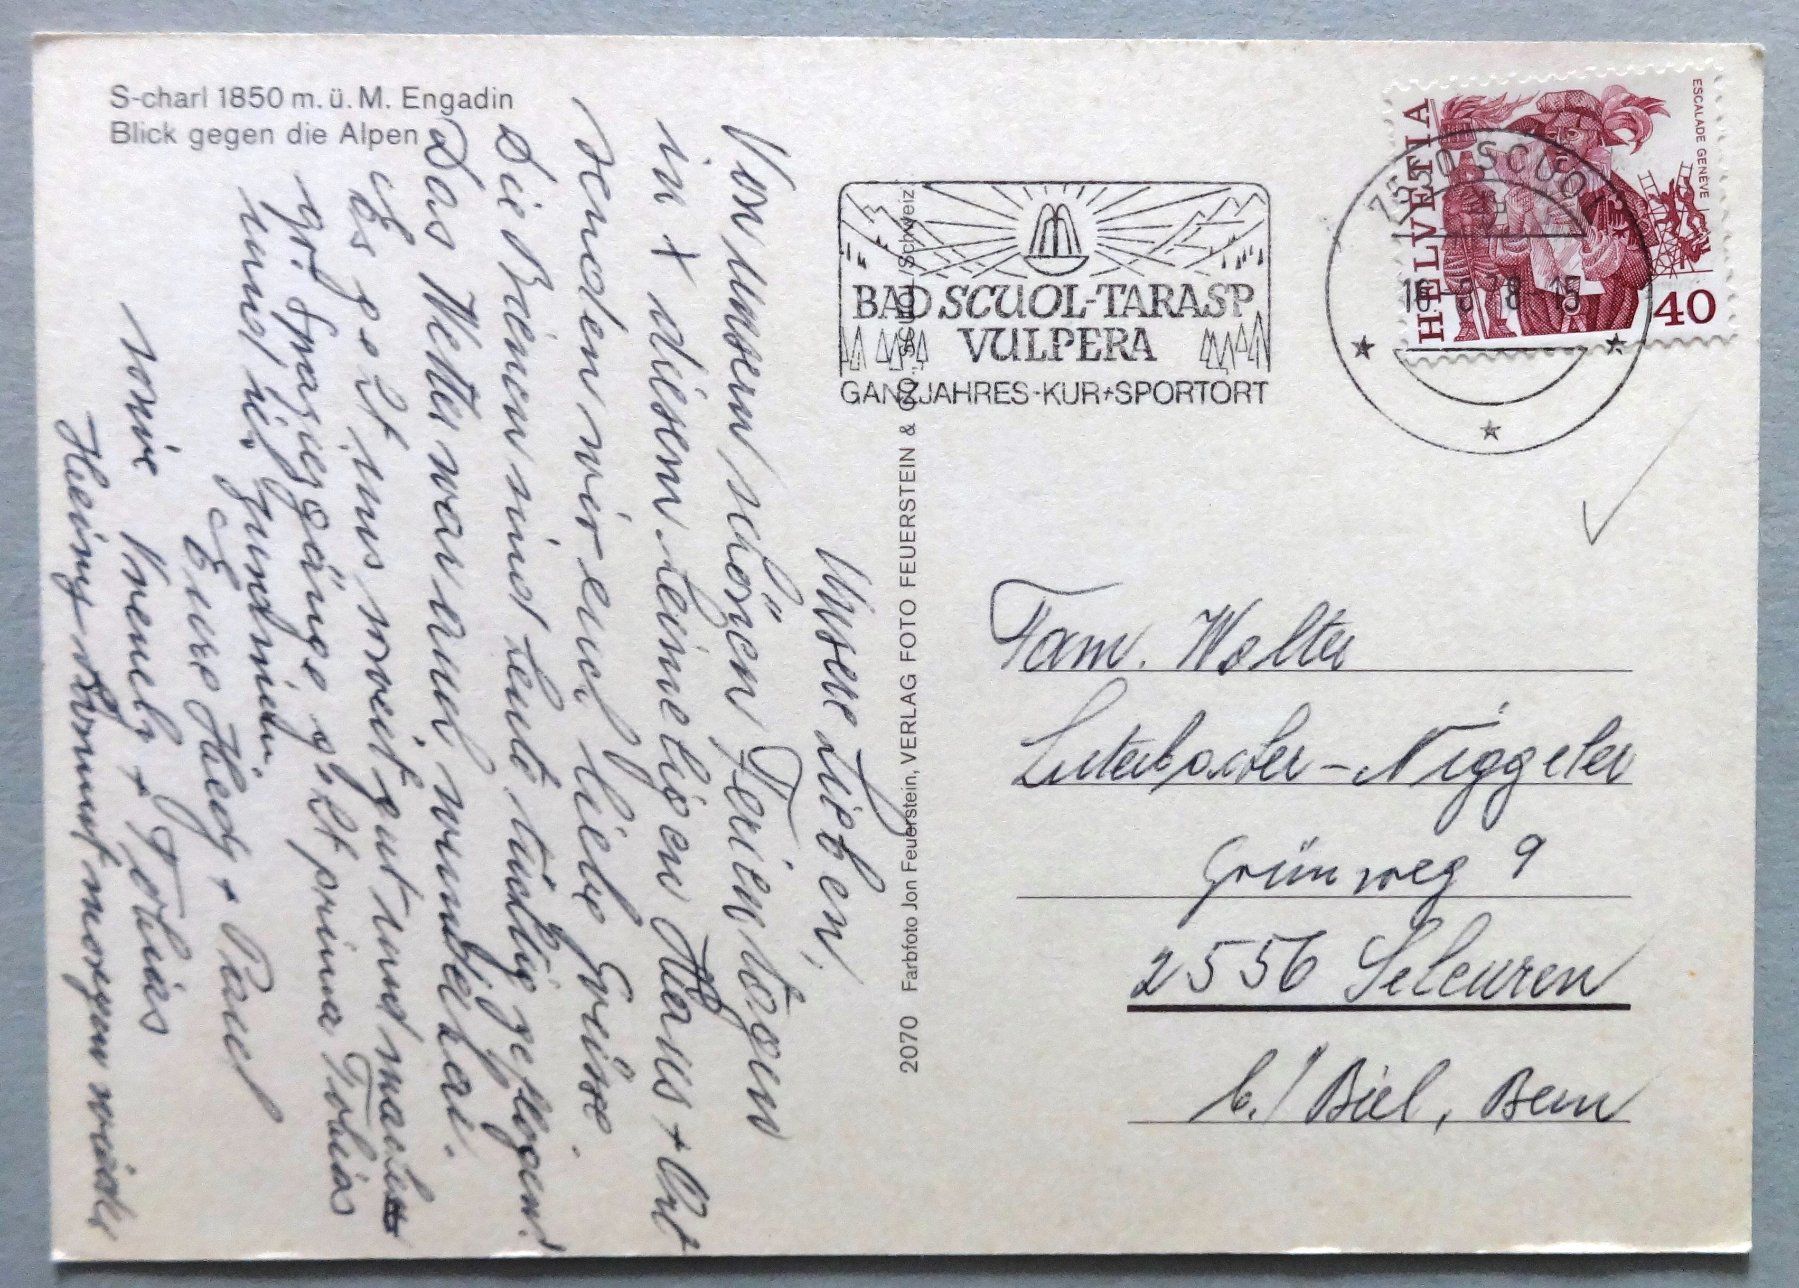 S-charl 1850 m. ü. M. Engadin
Blick gegen die Alpen
Unsere Lieben,
Von unsern schönen Ferientagen
in + diesem heimeligen Haus + Ort
senden wir euch liebe Grüsse.
Die Bienen sind heute tüchtig geflogen!
Das Wetter war auch wunderbar.
Es geht uns soweit gut und
gr. Spaziergänge g'ht prima Tobias
und ist gund
Eure Hedy + Paul
sowie Vreneli + Tobias
Heinz kommt morgen wieder
2070 Farbfoto Jon Feuerstein, VERLAG FOTO FEUERSTEIN & CO., SCUOL /Schweiz
BAD SCUOL-TARASP
VULPERA
GANZJAHRES-KUR+SPORTORT
7550 SCUOL
16 -8 78-15
HELVETIA
ESCALADE GENÈVE
40
Fam. Walter
Luterbacher-Niggeler
Grünweg 9
2556 Scheuren
b./Biel, Bern